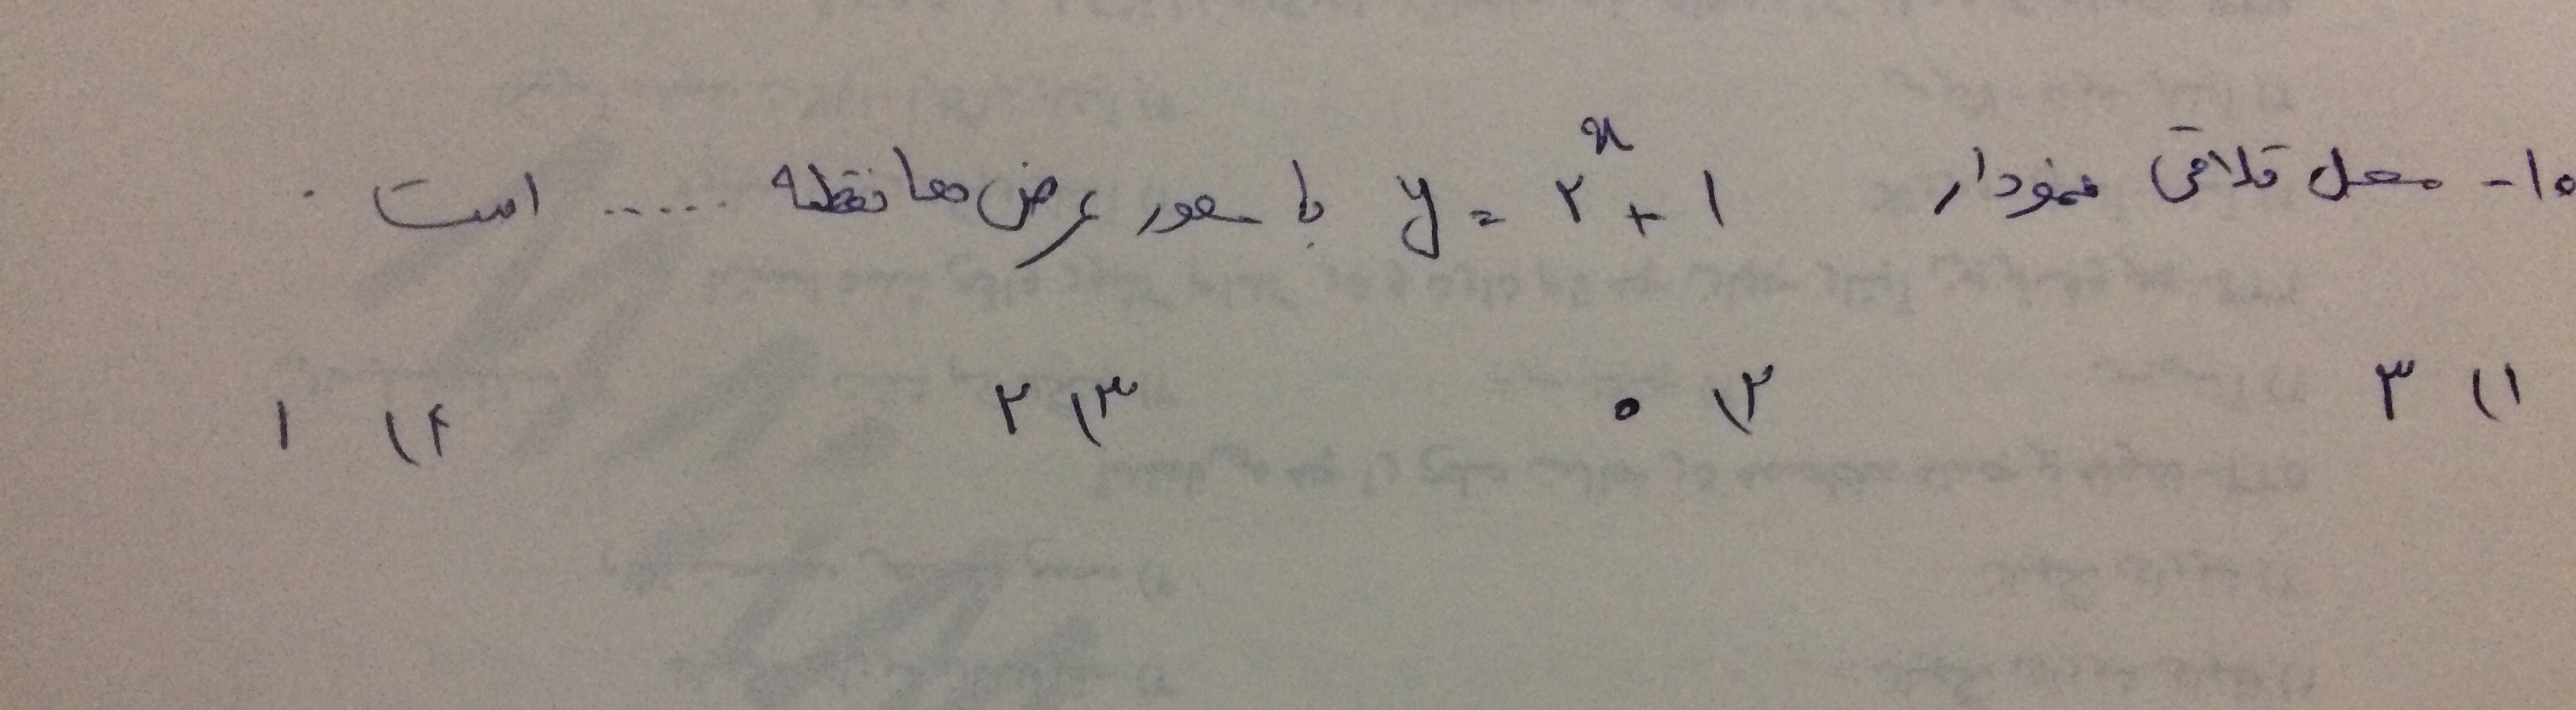 ۱۰- محل تلاقی نمودار y = ۲^x + ۱ با محور عرض ها نقطه ..... است.
۱) ۳ ۲) ۰ ۳) ۲ ۴) ۱